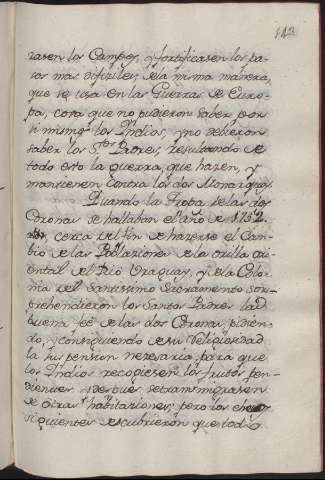 142
rasen los Campos, y fortificasen los pa-
sos mas dificiles, de la misma manera,
que se usa en las Guerras de Euro-
pa, cosa que no pudieron saber por
si mismos los Indios, y no debieron
saber los S.tos Padres, resultando de
todo esto la guerra, que hazen, y
mantienen contra los dos Monarquas.
Quando la Tropa de las dos
Coronas se hallaban el año de 1752.
cerca del fin de hazerse el Cam-
bio de las Poblaziones de la orilla ori-
ental del Rio Uraguay, y de la Colo-
nia del Santissimo Sacramento sor-
prehendieron los Santos Padres la
buena feé de las dos Coronas, pidien-
do, y consiguiendo de su Religiosidad
la suspension nezesaria para que
los Indios recogiesen los frutos pen-
dientes, y despues se transmigrasen
de otras habitaziones; pero los
siguientes descubrieron que todo